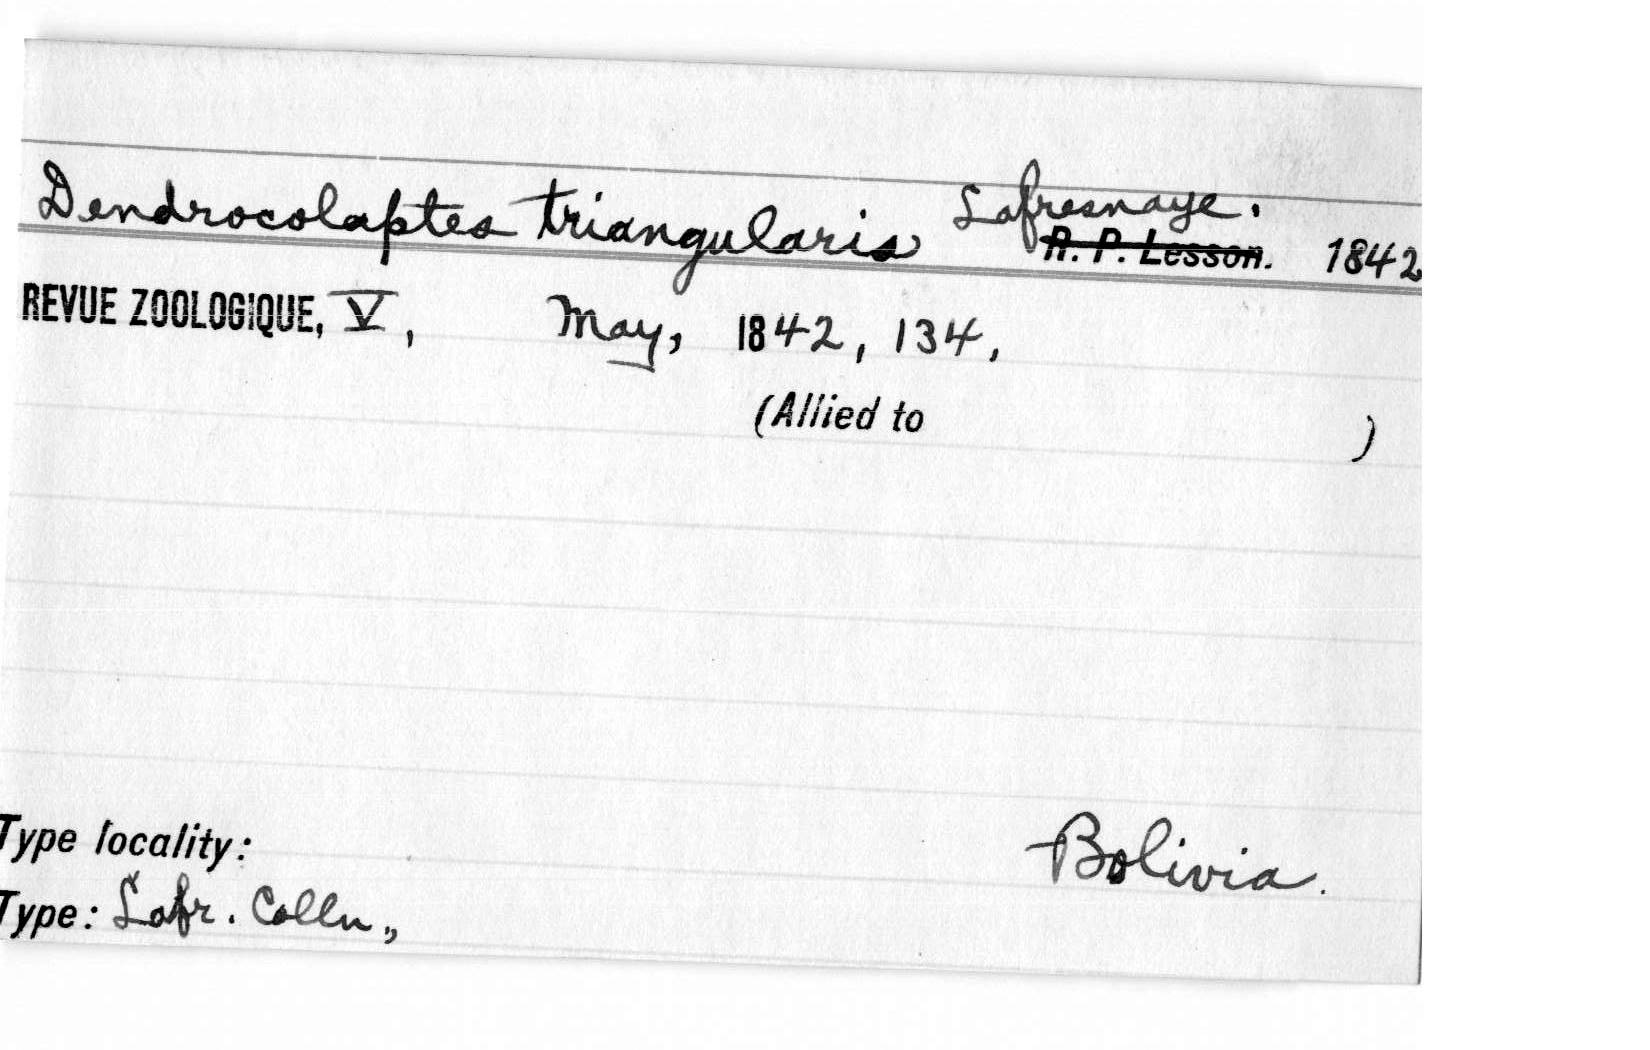 Dendrocolaptes triangularis Lafresnaye.
R. P. Lesson. 1842
REVUE ZOOLOGIQUE, V, May, 1842, 134,
(Allied to )
Type locality: Bolivia.
Type: Lafr. Colln.,